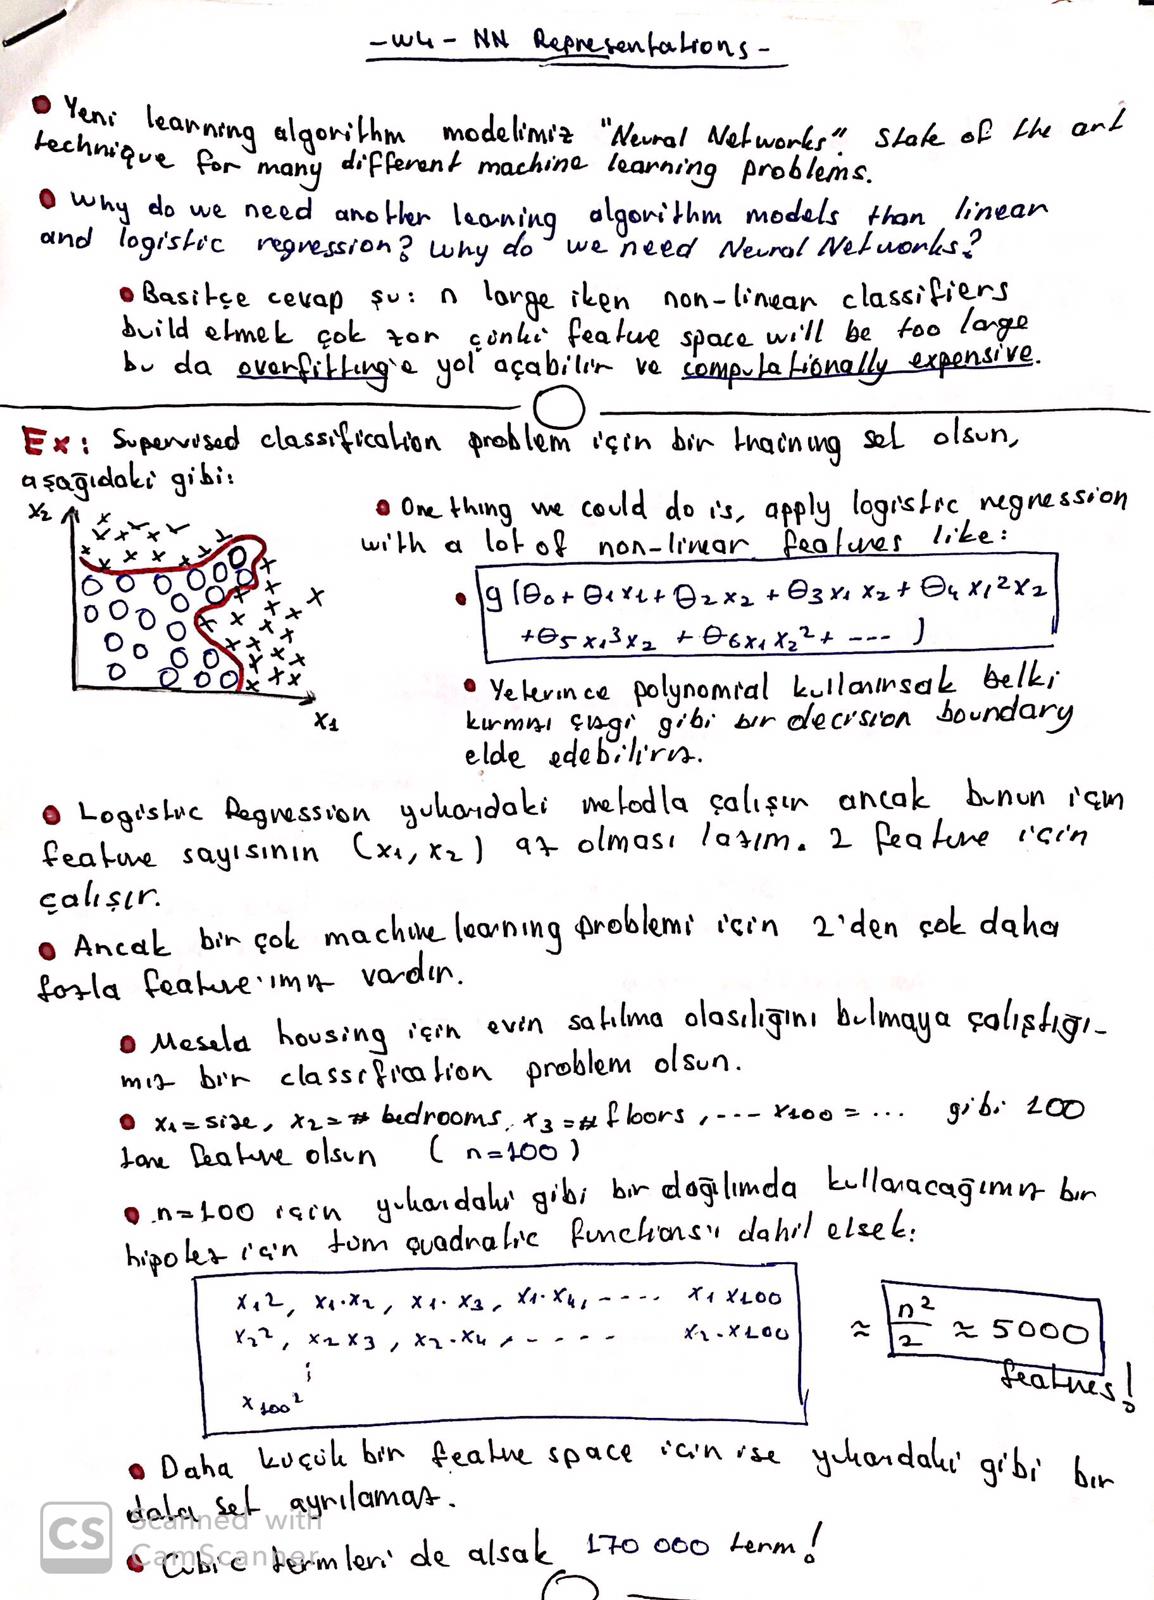 -W4- NN Representations-
• Yeni learning algorithm modelimiz "Neural Networks". State of the art
technique for many different machine learning problems.
• Why do we need another learning algorithm models than linear
and logistic regression? Why do we need Neural Networks?
• Basitçe cevap şu: n large iken non-linear classifiers
build etmek çok zor çünki feature space will be too large
bu da overfitting'e yol açabilir ve computationally expensive.
Ex: Supervised classification problem için bir training set olsun,
aşağıdaki gibi:
x2
x1
• One thing we could do is, apply logistic regression
with a lot of non-linear features like:
• g(θ0+θ1x1+θ2x2+θ3x1x2+θ4x1²x2
+θ5x1³x2+θ6x1x2²+---)
• Yeterince polynomial kullanırsak belki
kırmızı çizgi gibi bir decision boundary
elde edebiliriz.
• Logistic Regression yukarıdaki metodla çalışır ancak bunun için
feature sayısının (x1, x2) az olması lazım. 2 feature için
çalışır.
• Ancak bir çok machine learning problemi için 2'den çok daha
fazla feature'ımız vardır.
• Mesela housing için evin satılma olasılığını bulmaya çalıştığı-
mız bir classification problem olsun.
• x1=size, x2=# bedrooms, x3=# floors, --- x100=... gibi 100
tane feature olsun (n=100)
• n=100 için yukarıdaki gibi bir dağılımda kullanacağımız bir
hipotez için tüm quadratic functions'ı dahil etsek:
x1², x1.x2, x1.x3, x1.x4, ---- x1x100
x2², x2x3, x2.x4, ----- x2.x100
⋮
x100²
≈ n²/2 ≈ 5000
features!
• Daha küçük bir feature space için ise yukarıdaki gibi bir
data set ayrılamaz.
• Cubic termleri de alsak 170 000 term!
CS Scanned with
CamScanner